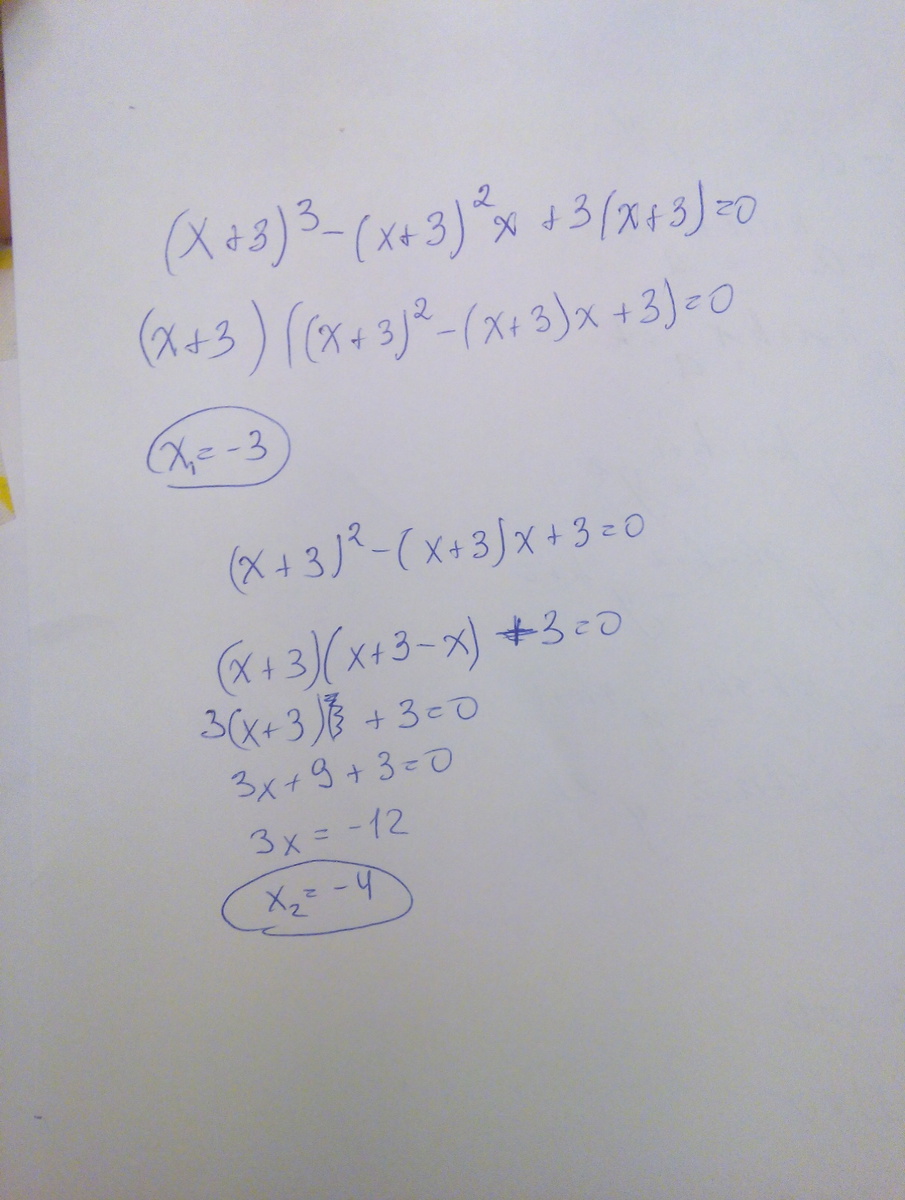 (x+3)³-(x+3)²x+3(x+3)=0
(x+3)((x+3)²-(x+3)x+3)=0
x₁=-3
(x+3)²-(x+3)x+3=0
(x+3)(x+3-x)+3=0
3(x+3)+3=0
3x+9+3=0
3x=-12
x₂=-4